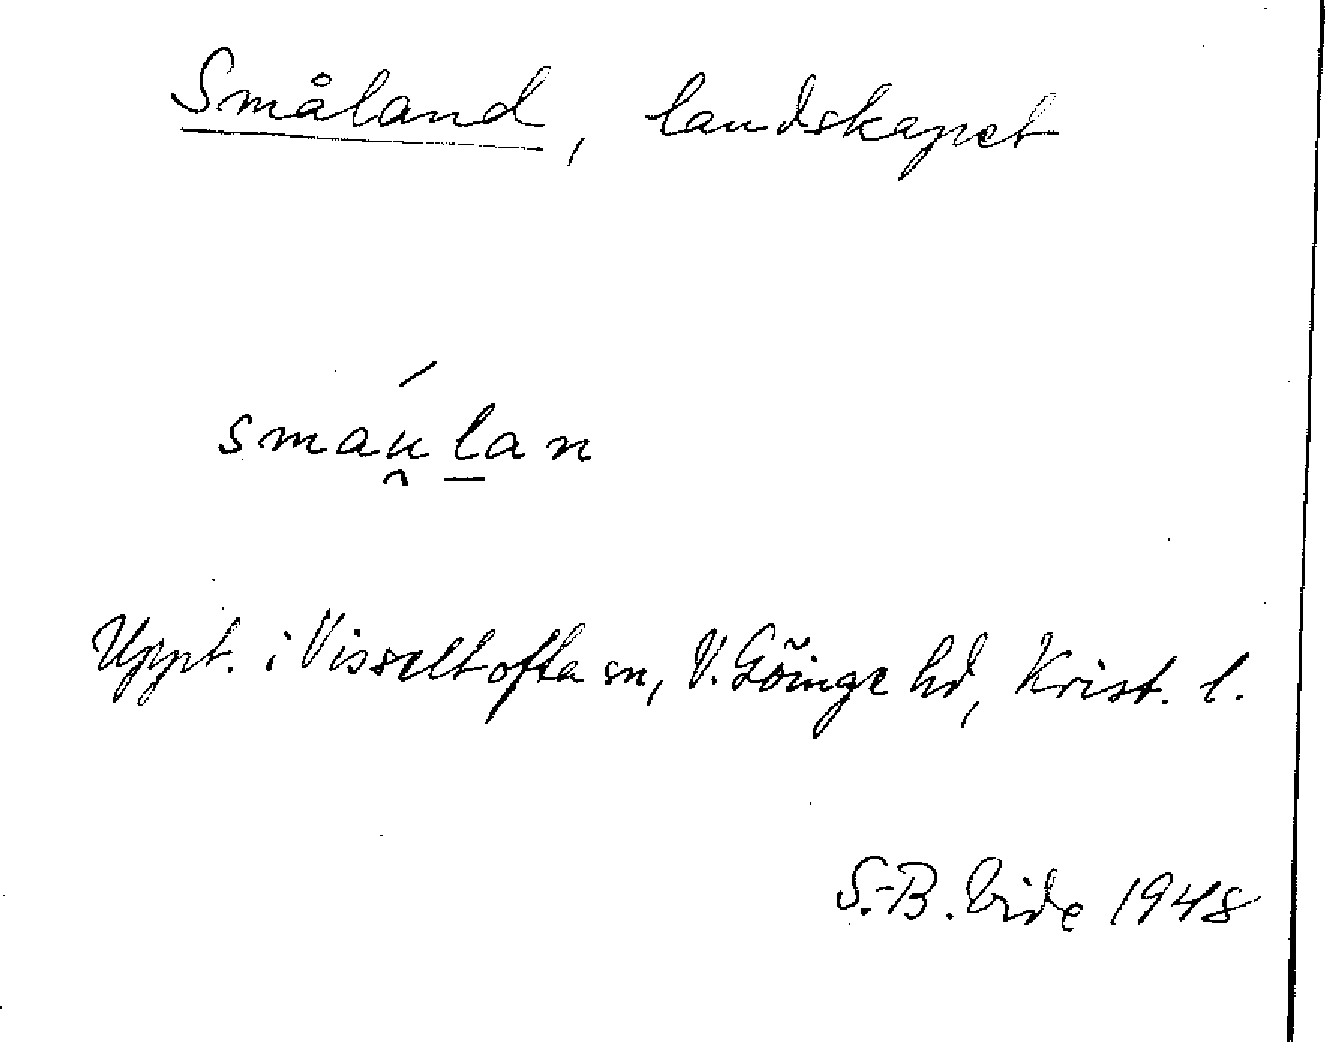 Småland, landskapet
smáu̯l̲an
Uppt. i Visseltofta sn, V. Göinge hd, Krist. l.
S.-B. Vide 1948